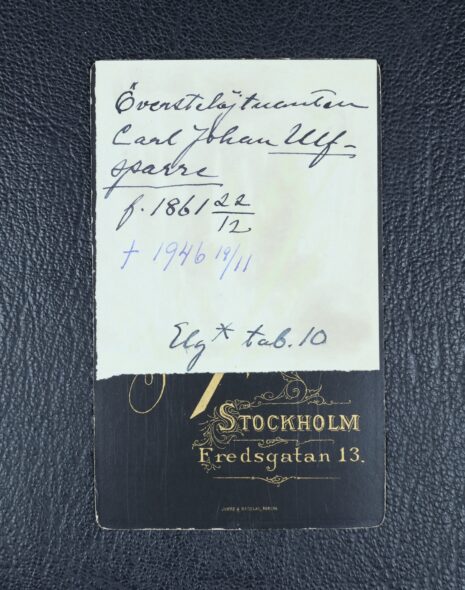 Överstelöjtnanten
Carl Johan Ulf-
sparre
f. 1861 22/12
† 1946 19/11
Elg* tab. 10
STOCKHOLM
Fredsgatan 13.